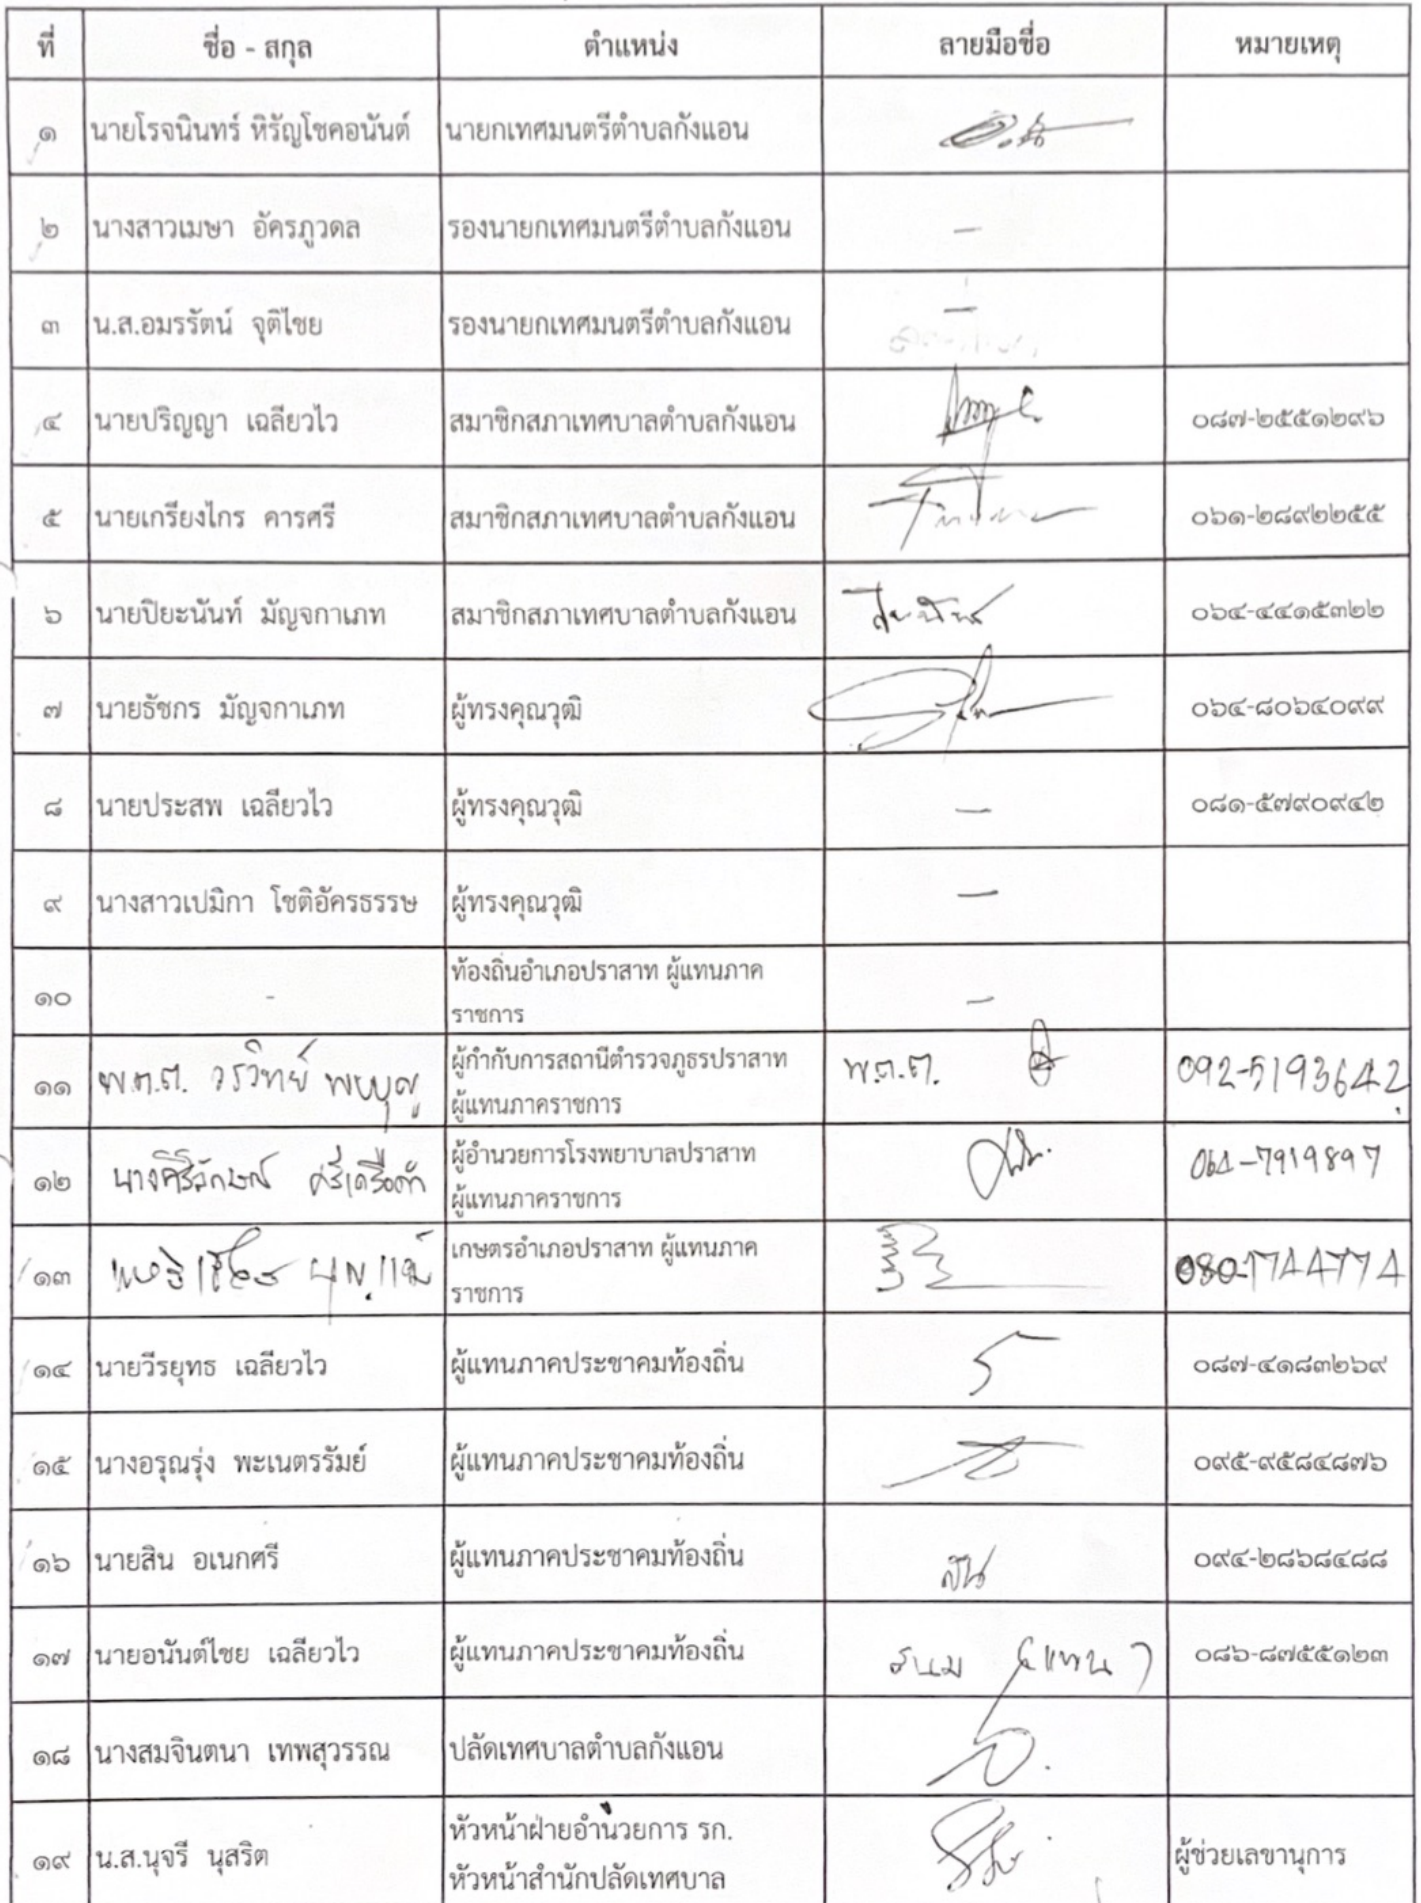 ที่ ชื่อ - สกุล ตำแหน่ง ลายมือชื่อ หมายเหตุ
๑ นายโรจนินทร์ หิรัญโชคอนันต์ นายกเทศมนตรีตำบลกังแอน
๒ นางสาวเมษา อัครภูวดล รองนายกเทศมนตรีตำบลกังแอน -
๓ น.ส.อมรรัตน์ จุติไชย รองนายกเทศมนตรีตำบลกังแอน -
๔ นายปริญญา เฉลียวไว สมาชิกสภาเทศบาลตำบลกังแอน ๐๘๗-๒๕๕๑๒๙๖
๕ นายเกรียงไกร คารศรี สมาชิกสภาเทศบาลตำบลกังแอน ๐๖๑-๒๘๙๒๒๕๕
๖ นายปิยะนันท์ มัญจกาเภท สมาชิกสภาเทศบาลตำบลกังแอน ปิยะนันท์ ๐๖๔-๔๔๑๕๓๒๒
๗ นายธัชกร มัญจกาเภท ผู้ทรงคุณวุฒิ ๐๖๔-๘๐๖๔๐๙๙
๘ นายประสพ เฉลียวไว ผู้ทรงคุณวุฒิ - ๐๘๑-๕๗๙๐๙๔๒
๙ นางสาวเปมิกา โชติอัครธรรษ ผู้ทรงคุณวุฒิ -
๑๐ - ท้องถิ่นอำเภอปราสาท ผู้แทนภาค -
ราชการ
๑๑ พ.ต.ต. วรวิทย์ ผู้กำกับการสถานีตำรวจภูธรปราสาท พ.ต.ต. 092-5193642
ผู้แทนภาคราชการ
๑๒ นางศิริลักษณ์ ศรีเครือดำ ผู้อำนวยการโรงพยาบาลปราสาท 064-7919897
ผู้แทนภาคราชการ
๑๓ เกษตรอำเภอปราสาท ผู้แทนภาค 080-1744774
ราชการ
๑๔ นายวีรยุทธ เฉลียวไว ผู้แทนภาคประชาคมท้องถิ่น ๐๘๗-๔๑๘๓๒๖๙
๑๕ นางอรุณรุ่ง พะเนตรรัมย์ ผู้แทนภาคประชาคมท้องถิ่น ๐๙๕-๙๕๘๔๘๗๖
๑๖ นายสิน อเนกศรี ผู้แทนภาคประชาคมท้องถิ่น สิน ๐๙๔-๒๘๖๘๔๘๘
๑๗ นายอนันต์ไชย เฉลียวไว ผู้แทนภาคประชาคมท้องถิ่น (แทน) ๐๘๖-๘๗๕๕๑๒๓
๑๘ นางสมจินตนา เทพสุวรรณ ปลัดเทศบาลตำบลกังแอน
๑๙ น.ส.นุจรี นุสริต หัวหน้าฝ่ายอำนวยการ รก. ผู้ช่วยเลขานุการ
หัวหน้าสำนักปลัดเทศบาล